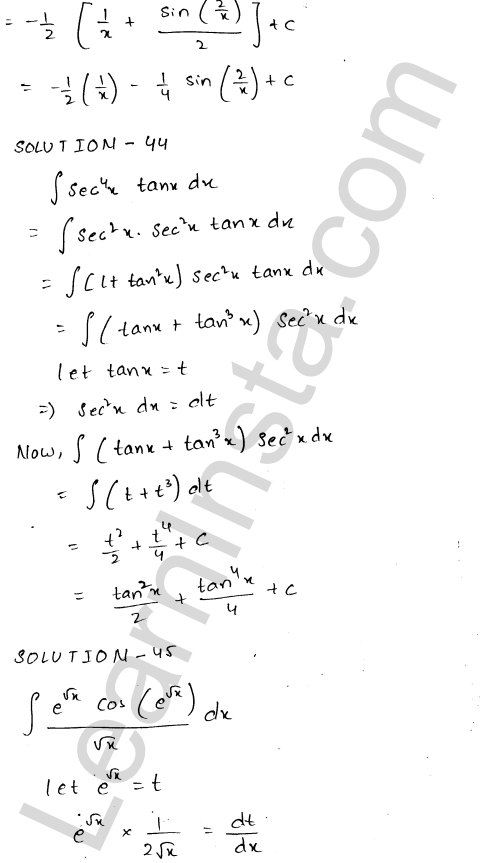 = -1/2 [ 1/x + sin(2/x)/2 ] + c
= -1/2 (1/x) - 1/4 sin(2/x) + c
SOLUTION - 44
∫ sec⁴x tanx dx
= ∫ sec²x. sec²x tanx dx
= ∫ (1+ tan²x) sec²x tanx dx
= ∫ (tanx + tan³x) sec²x dx
let tanx = t
=) sec²x dx = dt
Now, ∫ (tanx + tan³x) sec²x dx
= ∫ (t + t³) dt
= t²/2 + t⁴/4 + C
= tan²x/2 + tan⁴x/4 + c
SOLUTION - 45
∫ e^√x cos (e^√x)/√x dx
let e^√x = t
e^√x × 1/2√x = dt/dx
LearnInsta.com